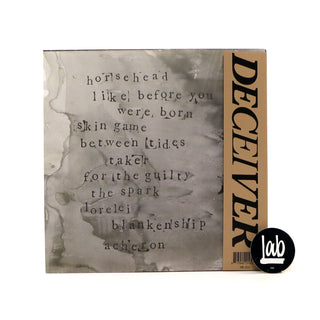 horsehead
like before you
were born
skin game
between tides
taker
for the guilty
the spark
lorelei
blankenship
acheron
DECEIVER
lab